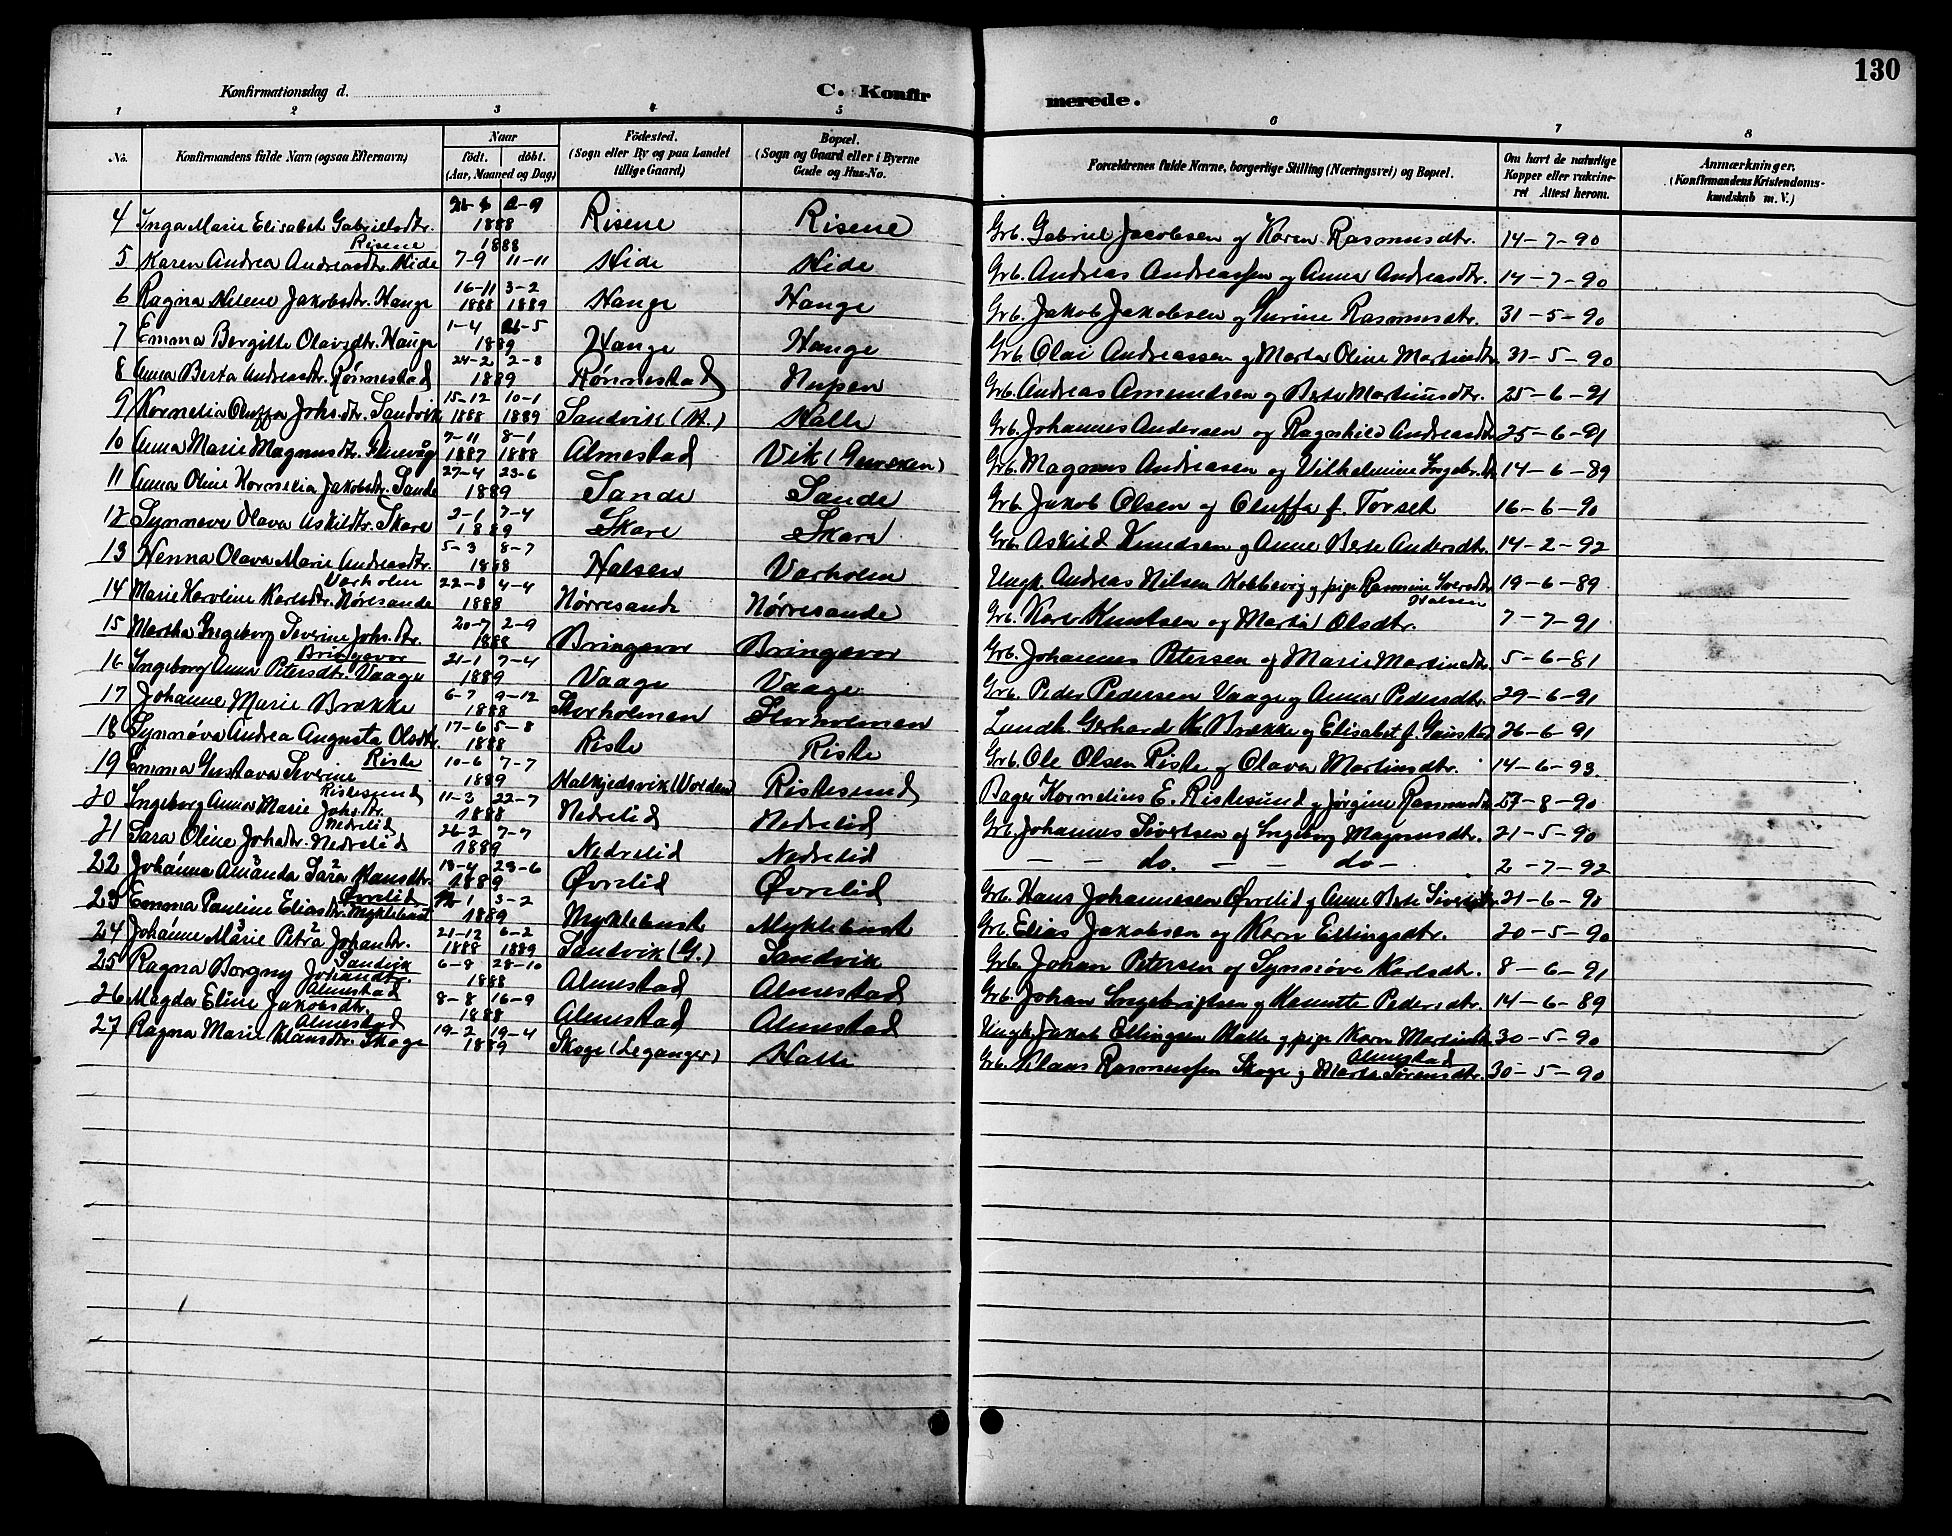 130
Konfirmationsdag d.
C. Konfirmerede.
1 2 3 4 5 6 7 8
No.
Konfirmandens fulde Navn (ogsaa Efternavn)
Naar
født. døbt.
(Aar, Maaned og Dag)
Födested.
(Sogn eller By og paa Landet
tillige Gaard)
Bopæl.
(Sogn og Gaard eller i Byerne
Gade og Hus-No.
Forældrenes fulde Navne, borgerlige Stilling (Næringsvei) og Bopæl.
Om havt de naturlige
Kopper eller vakcine-
ret Attest herom.
Anmærkninger.
(Konfirmandens Kristendoms-
kundskab m. V.)
4 Inga Marie Elisabet Gabrielsdtr. Risene 1888 Risene Risene Grb. Gabriel Jacobsen og Karen Rasmusdtr. 14-7-90
5 Karen Andrea Andreasdtr. Hide 7-9 11-11 1888 Hide Hide Grb. Andreas Andreassen og Anna Andreasdtr. 14-7-90
6 Ragna Helene Jakobsdtr. Hauge 16-11 1888 3-2 1889 Hauge Hauge Grb. Jakob Jakobsen og Rasmusdtr. 31-5-90
7 Emma Bergitte Olavsdtr. Hauge 1-4 26-5 1889 Hauge Hauge Grb. Olai Andreassen og Marta Oline Martinsdtr. 31-5-90
8 Anna Berta Andreasdtr. Rønnestad 24-2 2-8 1889 Rønnestad Nupen Grb. Andreas Amundsen og Berte Martinusdtr. 25-6-91
9 Kornelia Oluffa Johs.dtr. Sandvik 15-12 1888 10-1 1889 Sandvik (H.) Halle Grb. Johannes Andersen og Ragnhild Andreasdtr. 25-6-91
10 Anna Marie Magnusdtr. 7-11 1887 8-1 1888 Almestad Vik (Gursken) Grb. Magnus Andreasen og Vilhelmine Ingebr.dtr. 14-6-89
11 Anna Oline Kornelia Jakobsdtr. Sande 27-4 23-6 1889 Sande Sande Grb. Jakob Olsen og Oluffa f. Torset 16-6-90
12 Synneve Olava Askildtr. Skare 2-1 7-4 1889 Skare Skare Grb. Askild Knudsen og Anne Berte Andersdtr. 14-2-92
13 Henna Olava Marie Andreasdtr. Varholm 5-3 8-7 1888 Halsen Varholm Ungk. Andreas Nilsen Kobbevig og pige Rasmine Iversdtr. Halsen 19-6-89
14 Marie Karoline Karlsdtr. Nørresande 22-8 4-4 1888 Nørresande Nørresande Grb. Karl Knutsen og Marta Olsdtr. 7-7-91
15 Martha Ingeborg Severine Johs.dtr. Bringsvor 20-7 2-9 1888 Bringsvor Bringsvor Grb. Johannes Petersen og Marie Martinsdtr. 5-6-81
16 Ingeborg Anna Petersdtr. Vaage 21-1 7-4 1889 Vaage Vaage Grb. Peder Pedersen Vaage og Anna Pedersdtr. 29-6-91
17 Johanne Marie Brække 6-7 9-12 1888 Storholmen Storholmen Landh. Gerhard K. Brække og Elisabet f. 26-6-91
18 Synnøve Andrea Augusta Olsdtr. Riste 17-6 5-8 1888 Riste Riste Grb. Ole Olsen Riste og Olava Martinsdtr. 14-6-93.
19 Emma Gustava Severine Ristesund 10-6 7-7 1889 Halkjedsvik (Volden) Ristesund Bager Kornelius E. Ristesund og Jørgine Rasmusdtr. 27-8-90
20 Ingeborg Anna Marie Johs.dtr. Nedrelid 11-3 22-7 1888 Nedrelid Nedrelid Grb. Johannes Sivertsen og Ingeborg Magnusdtr. 21-5-90
21 Sara Oline Johsdtr. Nedrelid 26-2 7-7 1889 Nedrelid Nedrelid – – do. – – do – 2-7-92
22 Johanna Amanda Sara Hansdtr. Øvrelid 13-4 23-6 1889 Øvrelid Øvrelid Grb. Hans Johannesen Øvrelid og Anne Berte Sivertsdtr. 21-6-90
23 Emma Pauline Eliasdtr. Myklebust 3-2 1889 Myklebust Myklebust Grb. Elias Jakobsen og Karn Ellingsdtr. 20-5-90
24 Johanne Marie Petra Johansdtr. Sandvik 21-12 1888 6-2 1889 Sandvik (G.) Sandvik Grb. Johan Petersen og Synnøve Karlsdtr. 8-6-91
25 Ragna Borgny Johansdtr. Almestad 6-8 28-10 1888 Almestad Almestad Grb. Johan Ingebrigtsen og Pedersdtr. 14-6-89
26 Magda Eline Jakobsdtr. Almestad 8-8 16-9 1888 Almestad Almestad Ungk. Jakob Ellingsen Halle og pige Karn Martinsdtr. Almestad 30-5-90
27 Ragna Marie Klausdtr. Skoge 19-2 19-4 1889 Skoge (Leganger) Halle Grb. Klaus Rasmussen Skoge og Marta Sørensdtr. 30-5-90